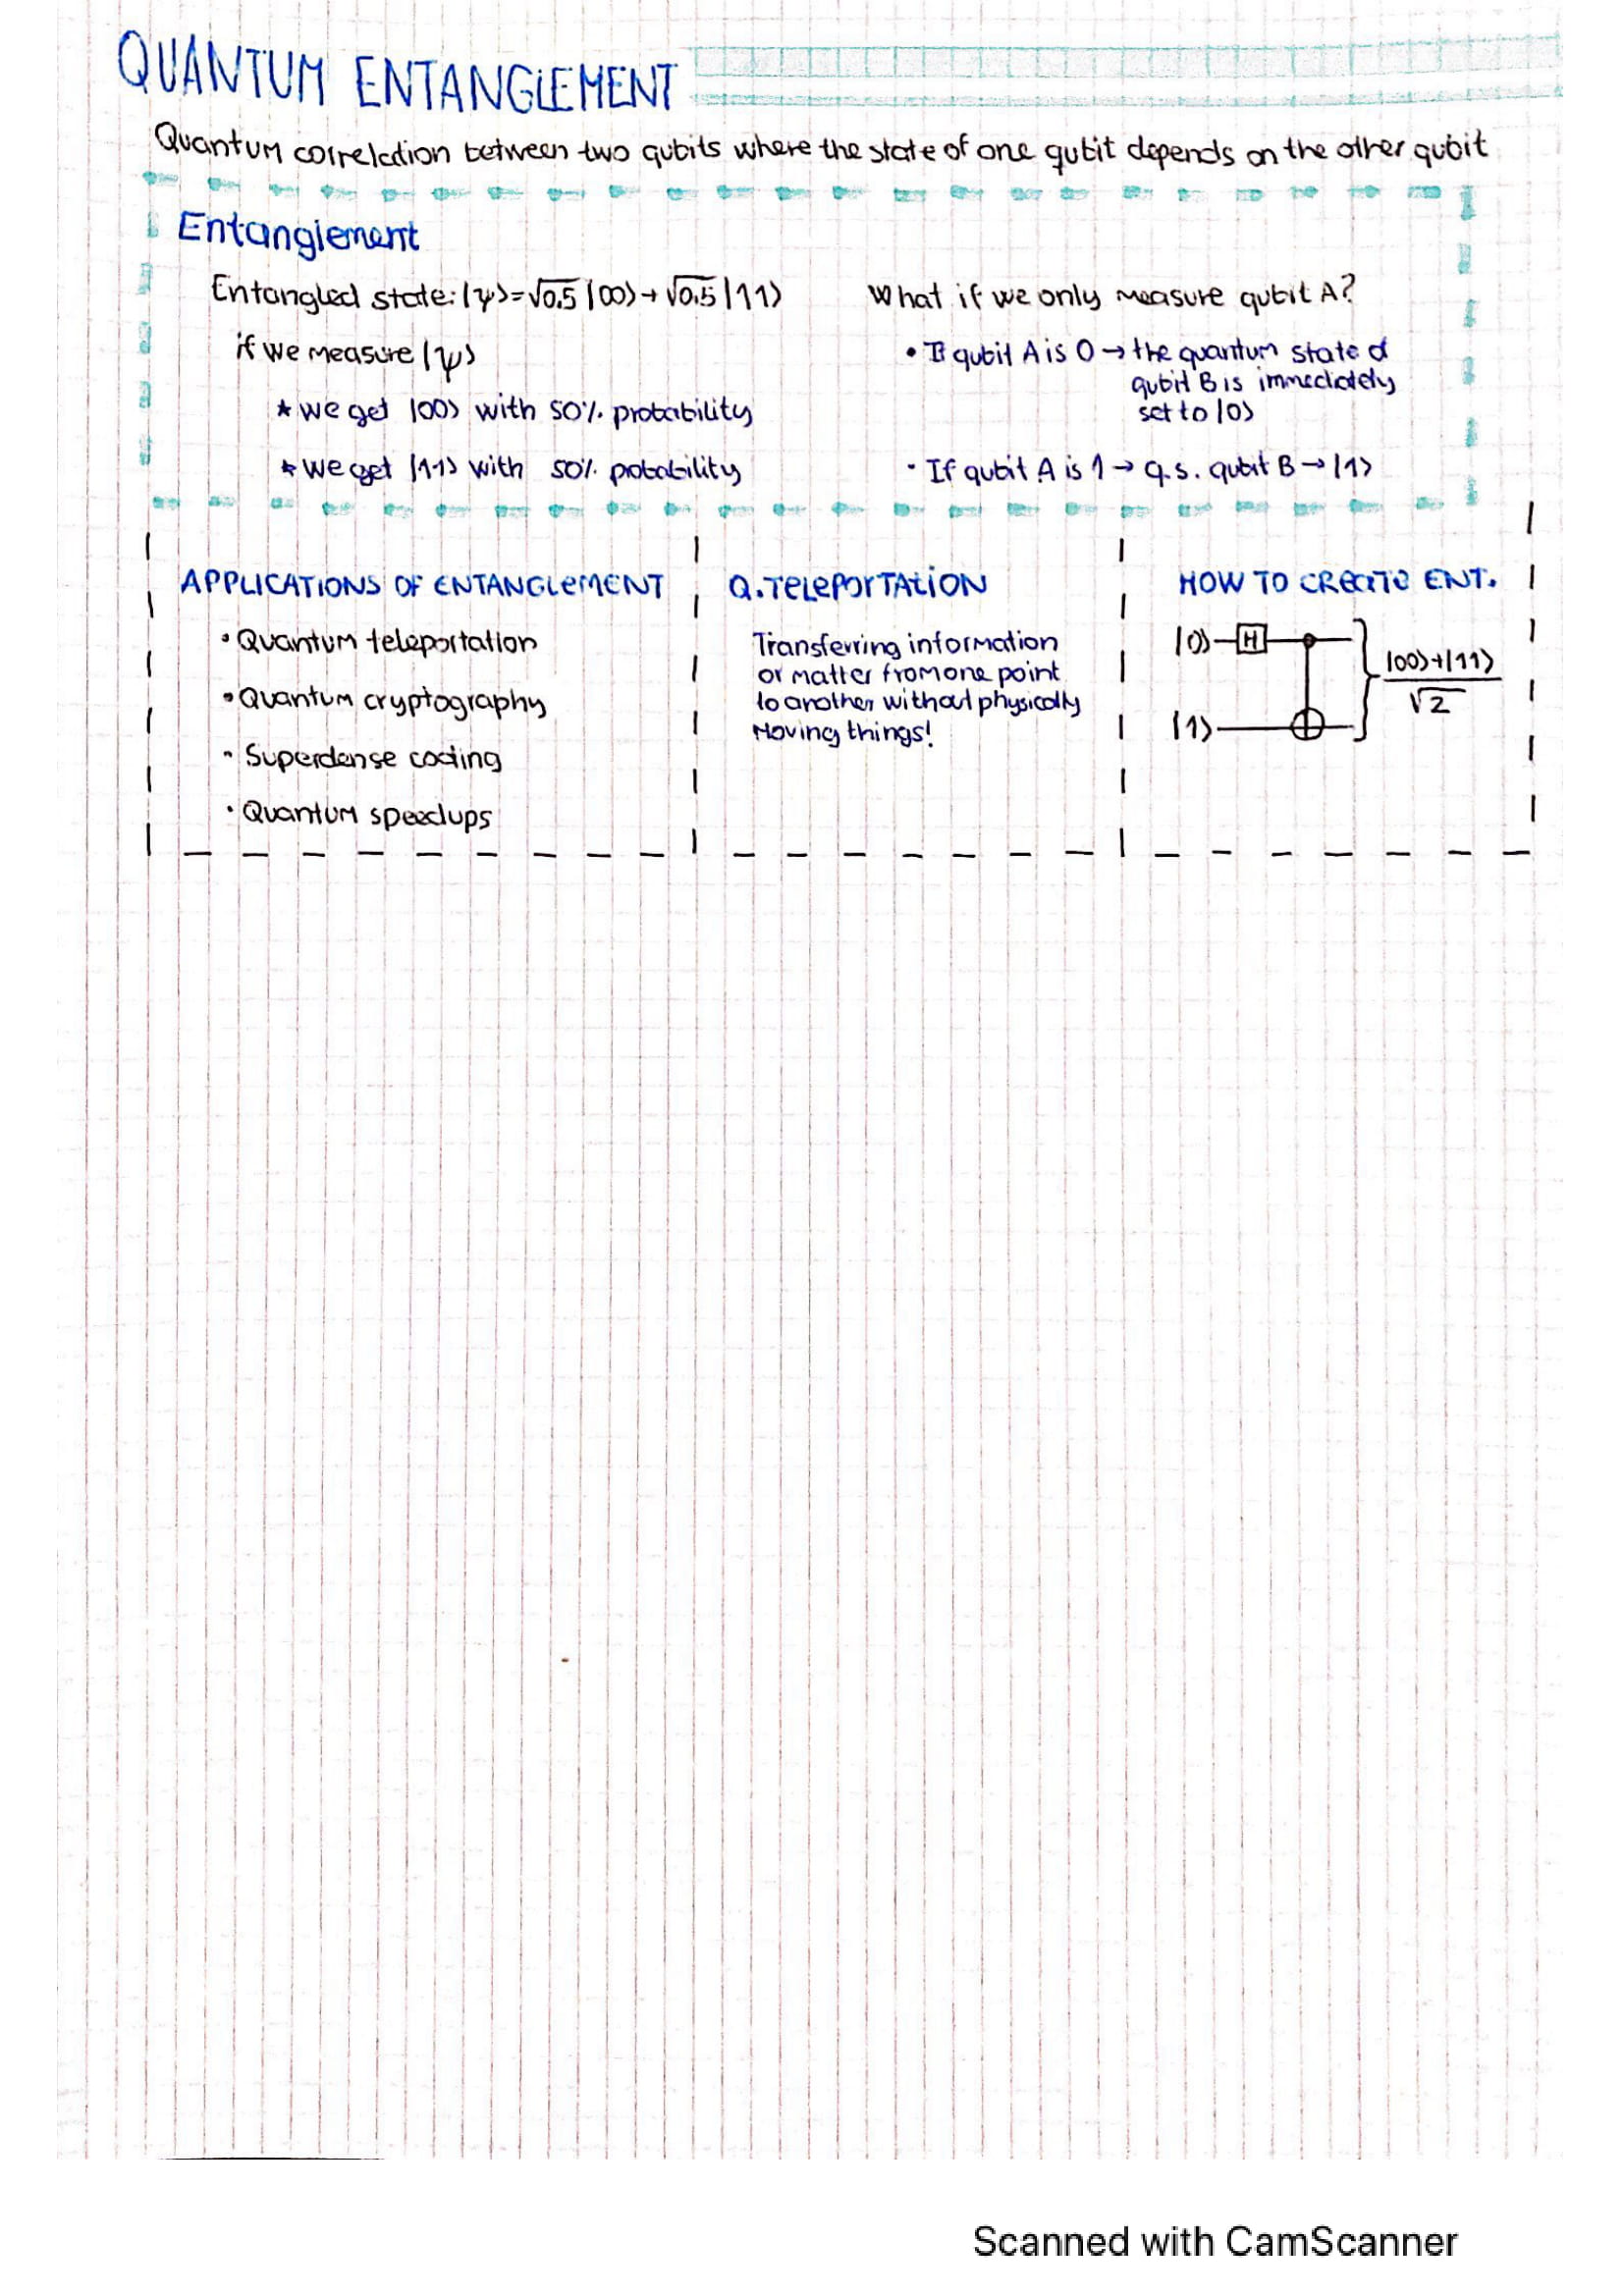 QUANTUM ENTANGLEMENT
Quantum correlation between two qubits where the state of one qubit depends on the other qubit
Entanglement
Entangled state: |ψ⟩=√0.5|00⟩+√0.5|11⟩
if we measure |ψ⟩
★ we get |00⟩ with 50% probability
★ we get |11⟩ with 50% probability
What if we only measure qubit A?
• If qubit A is 0 → the quantum state of
qubit B is immediately
set to |0⟩
• If qubit A is 1 → q.s. qubit B → |1⟩
APPLICATIONS OF ENTANGLEMENT
• Quantum teleportation
• Quantum cryptography
• Superdense coding
• Quantum speedups
Q. TELEPORTATION
Transferring information
or matter from one point
to another without physically
Moving things!
HOW TO CREATE ENT.
|0⟩ H
|1⟩
|00⟩+|11⟩
√2
Scanned with CamScanner